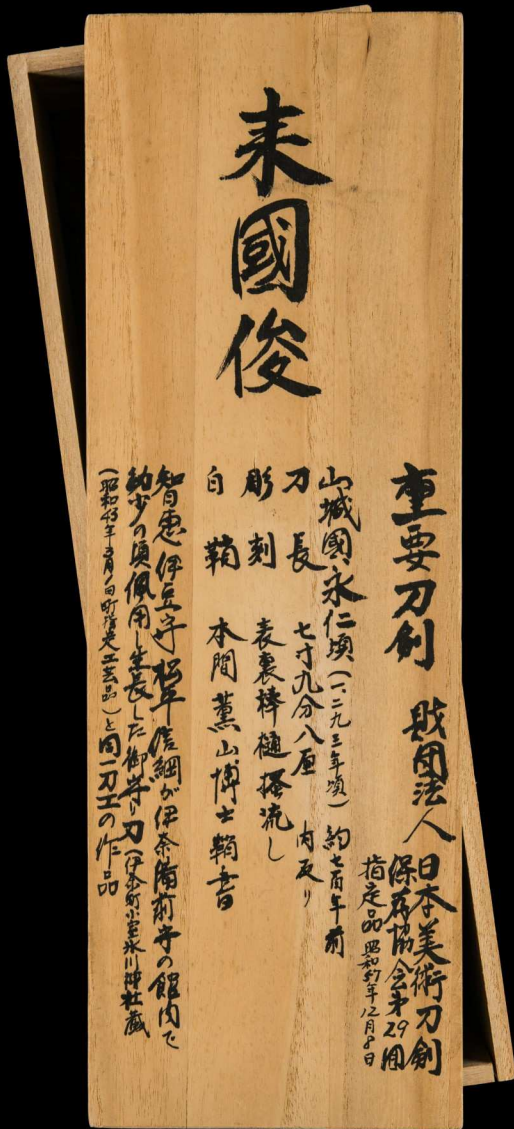 来國俊
重要刀剣 財団法人
日本美術刀剣
保存協会第29回
指定品 昭和57年12月8日
山城國永仁頃(一、二九三年頃)約七百年前
刀長 七寸九分八厘 内反り
彫刻 表裏棒樋掻流し
白鞘 本間薫山博士鞘書
智恵伊豆守松平信綱が伊奈備前守の館内で
幼少の頃佩用し生長した御守り刀(伊奈町小室氷川神社蔵
(昭和43年3月1日町指定工芸品)と同一刀工の作品